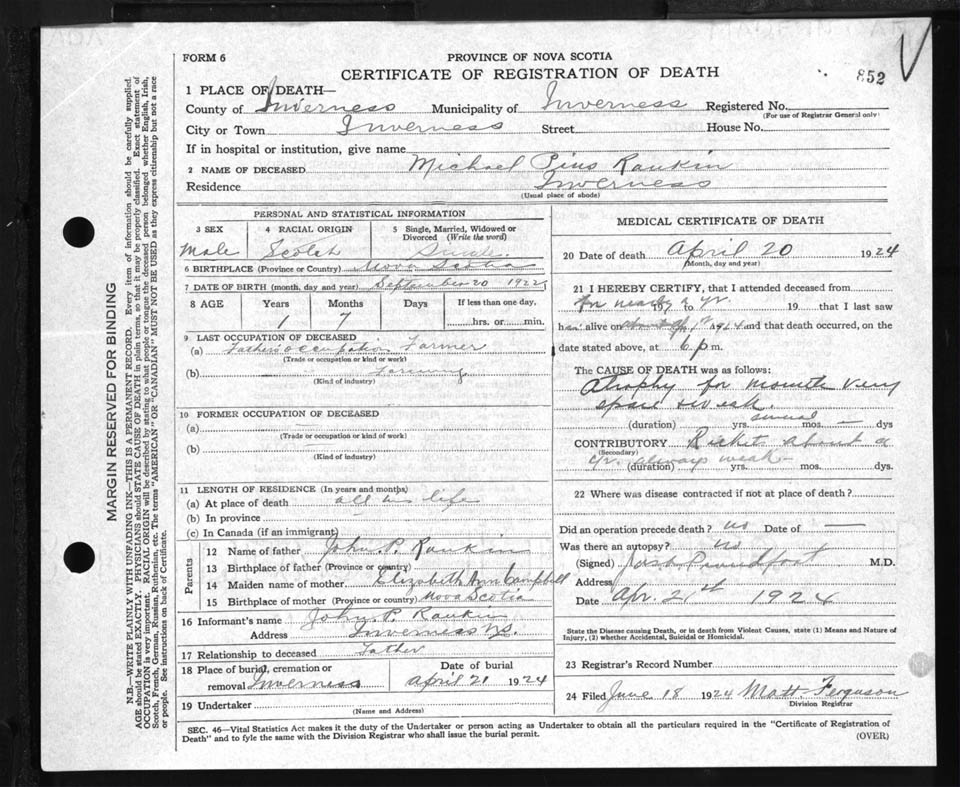 FORM 6
PROVINCE OF NOVA SCOTIA
852
CERTIFICATE OF REGISTRATION OF DEATH
1 PLACE OF DEATH—
County of Inverness Municipality of Inverness Registered No.
(For use of Registrar General only)
City or Town Inverness Street House No.
If in hospital or institution, give name
2 NAME OF DECEASED Michael Pius Rankin
Residence Inverness
(Usual place of abode)
PERSONAL AND STATISTICAL INFORMATION
3 SEX 4 RACIAL ORIGIN 5 Single, Married, Widowed or Divorced (Write the word)
Male Scotch Single
6 BIRTHPLACE (Province or Country) Nova Scotia
7 DATE OF BIRTH (month, day and year) September 20 1922
8 AGE Years Months Days If less than one day,
1 7 hrs. or min.
9 LAST OCCUPATION OF DECEASED
(a) Fathers occupation Farmer
(Trade or occupation or kind or work)
(b) Farming
(Kind of industry)
10 FORMER OCCUPATION OF DECEASED
(a) —
(Trade or occupation or kind of work)
(b)
(Kind of industry)
11 LENGTH OF RESIDENCE (In years and months)
(a) At place of death all his life
(b) In province
(c) In Canada (if an immigrant)
Parents
12 Name of father John P. Rankin
13 Birthplace of father (Province or country)
14 Maiden name of mother Elizabeth Ann Campbell
15 Birthplace of mother (Province or country) Nova Scotia
16 Informant's name John P. Rankin
Address Inverness N.S.
17 Relationship to deceased Father
18 Place of burial, cremation or removal Inverness
Date of burial
April 21 1924
19 Undertaker
(Name and Address)
MEDICAL CERTIFICATE OF DEATH
20 Date of death April 20 1924
(Month, day and year)
21 I HEREBY CERTIFY, that I attended deceased from
for nearly a yr. 19 to 19 that I last saw
h alive on 1924 and that death occurred, on
date stated above, at 6 p m.
The CAUSE OF DEATH was as follows:
Atrophy for month very
weak.
(duration) yrs. several mos. — dys
CONTRIBUTORY Rickets about a
(Secondary)
yr. always weak
(duration) yrs. mos. dys.
22 Where was disease contracted if not at place of death?
Did an operation precede death? no Date of —
Was there an autopsy? no
(Signed) Proudfoot M.D.
Address
Date Apr. 21st 1924
State the Disease causing Death, or in death from Violent Causes, state (1) Means and Nature of
Injury, (2) whether Accidental, Suicidal or Homicidal.
23 Registrar's Record Number
24 Filed June 18 1924 Matt. Ferguson
Division Registrar
SEC. 46—Vital Statistics Act makes it the duty of the Undertaker or person acting as Undertaker to obtain all the particulars required in the "Certificate of Registration of
Death" and to fyle the same with the Division Registrar who shall issue the burial permit.
(OVER)
MARGIN RESERVED FOR BINDING
N.B.—WRITE PLAINLY WITH UNFADING INK—THIS IS A PERMANENT RECORD. Every item of information should be carefully supplied.
AGE should be stated EXACTLY. PHYSICIANS should STATE CAUSE OF DEATH in plain terms, so that it may be properly classified. Exact statement of
OCCUPATION is very important. RACIAL ORIGIN will be described by stating to what people or tongue the deceased person belonged whether English, Irish,
Scotch, French, German, Russian, Ruthenian, etc. The terms "AMERICAN" OR "CANADIAN" MUST NOT BE USED as they express citizenship but not a race
or people. See instructions on back of Certificate.